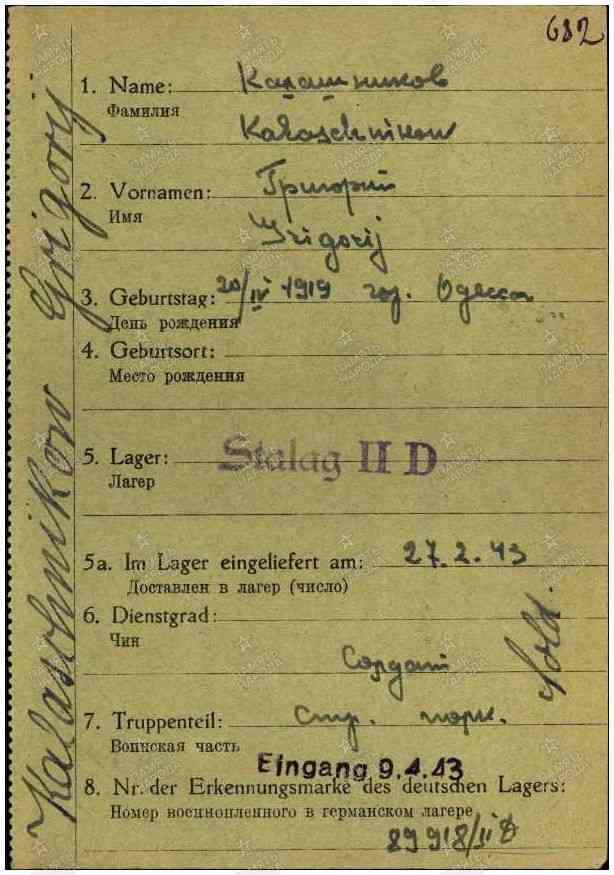 682
1. Name: Калашников
Фамилия
Kalaschnikow
2. Vornamen: Григорий
Имя
Grigorij
3. Geburtstag: 20/IV 1919 гор. Одесса
День рождения
4. Geburtsort:
Место рождения
5. Lager: Stalag II D
Лагер
5a. Im Lager eingeliefert am: 27.2.43
Доставлен в лагер (число)
6. Dienstgrad:
Чин
Солдат
Sold.
7. Truppenteil: Стр. полк.
Воинская часть
Eingang 9.4.43
8. Nr. der Erkennungsmarke des deutschen Lagers:
Номер военнопленного в германском лагере
89918/II D
Kalaschnikow Grigorij
ПАМЯТЬ НАРОДА